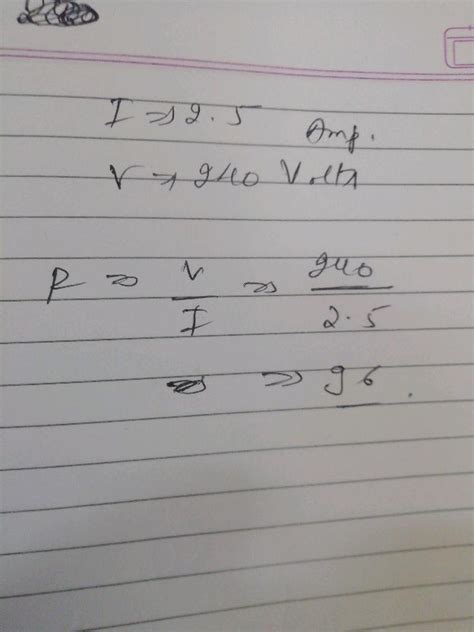 I ⇒ 2.5 Amp.
V → 240 Volts
R ⇒ V/I ⇒ 240/2.5
⇒ 96.